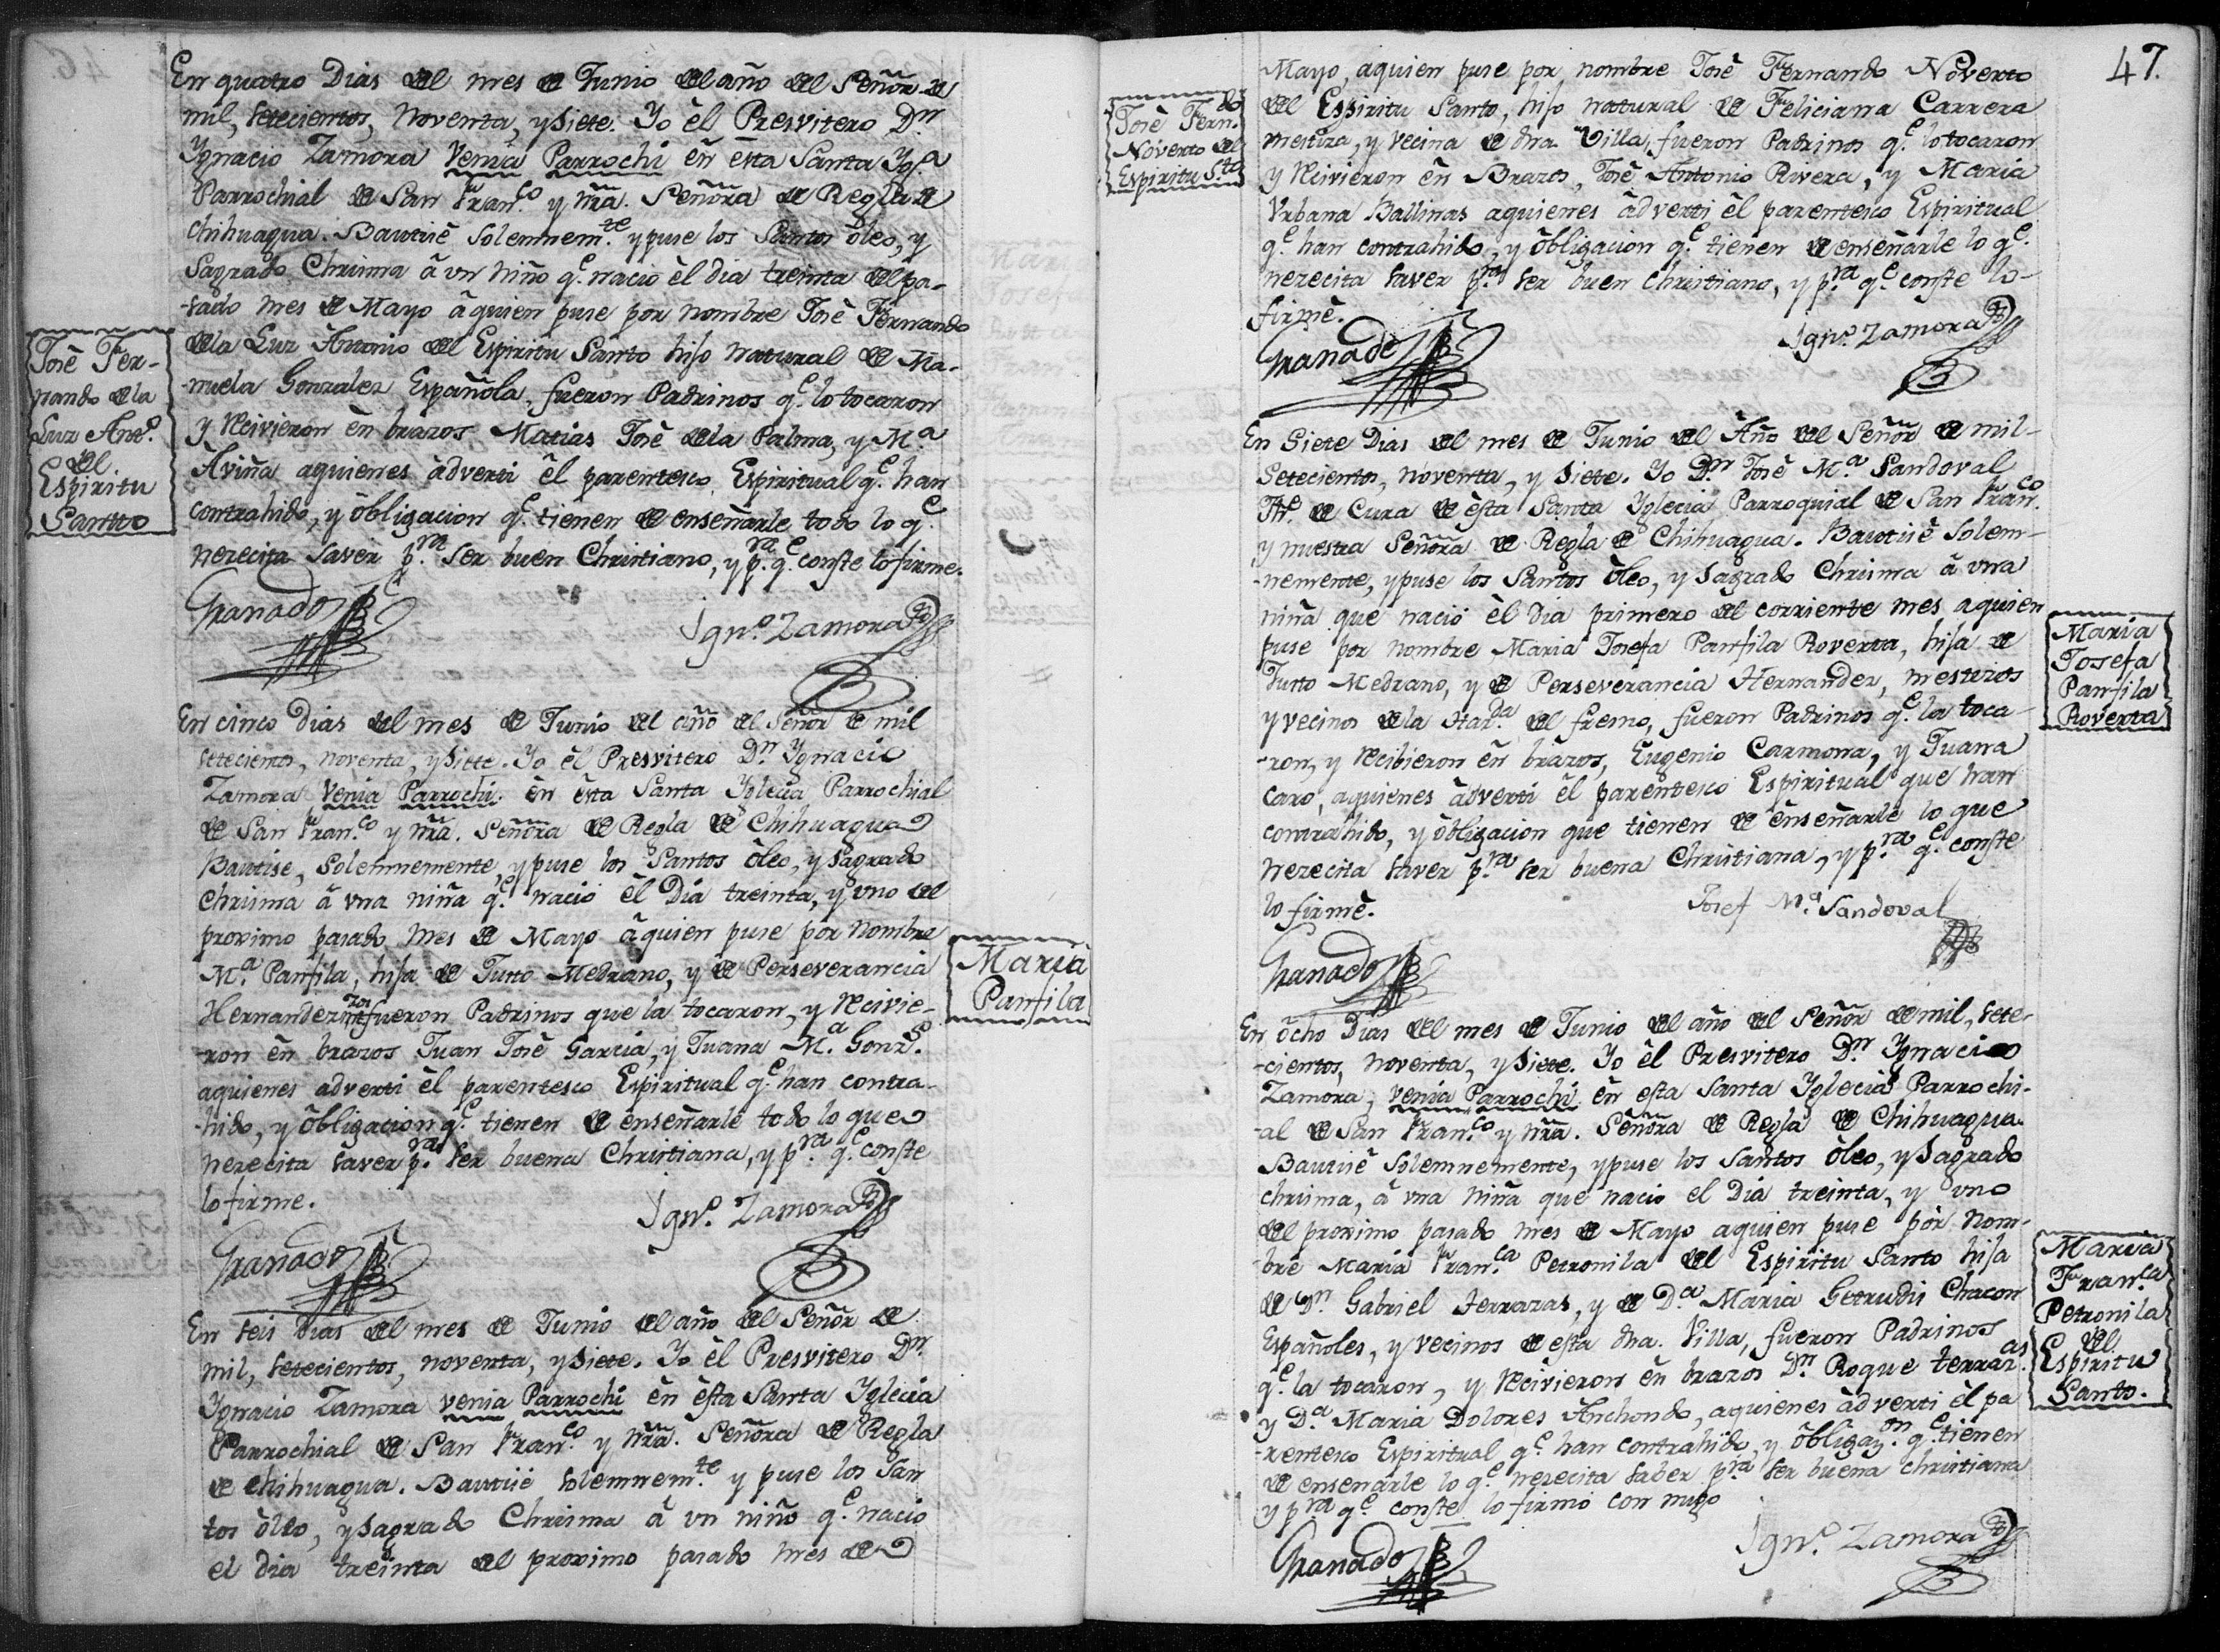 En quatro Dias del mes de Junio del año del Señor de
mil, setecientos, Noventa, y Siete. Yo êl Presvitero Dn.
Ygnacio Zamora Venia Parrochi ên êsta Santa Ygª
Parrochial de San Fran.co y nrã. Señora de Regla de
Chihuagua. Bautisé Solemnem.te y puse los Santos ôleo, y
Sagrado Chrisma â vn Niño q.e nacio êl dia treinta del pa-
-sado mes de Mayo âquien puse por nombre Josê Fernando
Josê Fer-
nando de la
Luz Ant.o
del.
Espiritu
Santto
de la Luz Antonio del Espiritu Santo hijo natural de Ma-
-nuela Gonzalez Española, fueron Padrinos q.e lo tocaron
y Recivieron ên brazos Matias Josê de la Palma, y M.a
Âviña aquienes âdverti êl parentesco Espiritual q.e han
contrahido, y ôbligacion q.e tienen de enseñarle todo lo q.e
nezecita Saver p.ra Ser buen Christiano, y p.ra q.e conste lo firme.
Granado
Ign.o Zamora
En cinco Dias del mes de Junio del año del Señor de mil
setecientos, noventa, y Siete. Yo êl Presvitero Dn. Ygnacio
Zamora Venia Parrochi ên êsta Santa Yglecia Parrochial
de San Fran.co y nrã. Señora de Regla de Chihuagua
Bautise, Solemnemente, y puse los Santos ôleo, y Sagrado
Chrisma â vna niña q.e nacio êl Dia treinta, y vno del
proximo pasado mes de Mayo âquien puse por nombre
Maria
Panfila
M.a Panfila, hija de Justo Medrano, y de Perseverancia
Hernandez fueron Padrinos que la tocaron, y Recivie-
-ron ên brazos Juan Josê Garcia, y Juana M.a Gonz.s
aquienes adverti êl parentesco Espiritual q.e han contra-
-hido, y ôbligacion q.e tienen de ênseñarle todo lo que
nezecita saver p.ra ser buena Christiana, y p.ra q.e conste
lo firme.
Ign.o Zamora
Granado
En seis Dias del mes de Junio del año del Señor de
mil, setecientos, noventa, y Siete. Yo êl Presvitero Dn.
Ygnacio Zamora venia Parrochi ên êsta Santa Yglecia
Parrochial de San Fran.co y nrã. Señora de Regla
de Chihuagua. Bautisé solemnem.te y puse los San
tos ôleo, y Sagrado Chrisma â vn niño q.e nacio
el dia treinta del proximo pasado mes de
47.
Mayo, aquien puse por nombre Josê Fernando Noverto
Josê Fern.do
Noverto del
Espiritu S.to
del Espiritu Santo, hijo natural de Feliciana Carrera
mestiza, y vecina de dha. Villa, fueron Padrinos q.e lo tocaron
y Recivieron ên Brazos, Josê Antonio Rivera, y Maria
Vrbana Ballinas aquienes âdverti êl parentesco Espiritual
q.e han contrahido, y ôbligacion q.e tienen de enseñarle lo q.e
nezecita saver p.ra ser buen christiano, y p.ra q.e conste lo-
firmê.
Granado
Ign.o Zamora
En Siete Dias del mes de Junio del Âño del Señor de mil-
Setecientos, noventa, y Siete. Yo Dn. Josê M.a Sandoval
Th.e de Cura de êsta Santa Yglecia Parroquial de San Fran.co
y nuestra Señora de Regla de Chihuagua. Bautisê Solem-
-nemente, y puse los Santos Ôleo, y Sagrado Chrisma â vna
niña que nació êl dia primero del corriente mes aquien
puse por nombre Maria Josefa Panfila Roverta, hija de
Maria
Josefa
Panfila
Roverta
Justo Medrano, y de Perseverancia Hernandez, mestizos
y vecinos de la Haz.da del fresno, fueron Padrinos q.e la toca-
-ron, y Recibieron ên brazos, Eugenio Carmona, y Juana
Caro, aquienes âdverti êl parentesco Espiritual que han
contrahido, y ôbligacion que tienen de ênseñarle lo que
nezecita saver p.ra ser buena Christiana, y p.ra q.e conste
lo firmê.
Josef M.a Sandoval
Granado
En ôcho Dias del mes de Junio del año del Señor de mil, sete-
-cientos, noventa, y Siete. Yo êl Presvitero Dn. Ygnacio
Zamora, venia Parrochi ên esta Santa Yglecia Parrochi-
-al de San Fran.co y nrã. Señora de Regla de Chihuagua.
Bautisê Solemnemente, y puse los Santos ôleo, y Sagrado
chrisma, â vna niña que nacio el Dia treinta, y vno
del proximo pasado mes de Mayo aquien puse por nom-
-bre Maria Fran.ca Petronila del Espiritu Santo hija
Maria
Fran.ca
Petronila
del
Espiritu
Santo.
de Dn. Gabriel Terrazas, y de D.a Maria Getrudis Chacon
Españoles, y vecinos de esta dha. Villa, fueron Padrinos
q.e la tocaron, y Recivieron ên brazos Dn. Roque terraz.as
y D.a Maria Dolores Anchondo, aquienes âdverti êl pa
-rentesco Espiritual q.e han contrahido, y ôbligaz.on q.e tienen
de enseñarle lo q.e nezecita saber p.ra ser buena christiana
y p.ra q.e conste lo firmó con migo
Granado
Ign.o Zamora